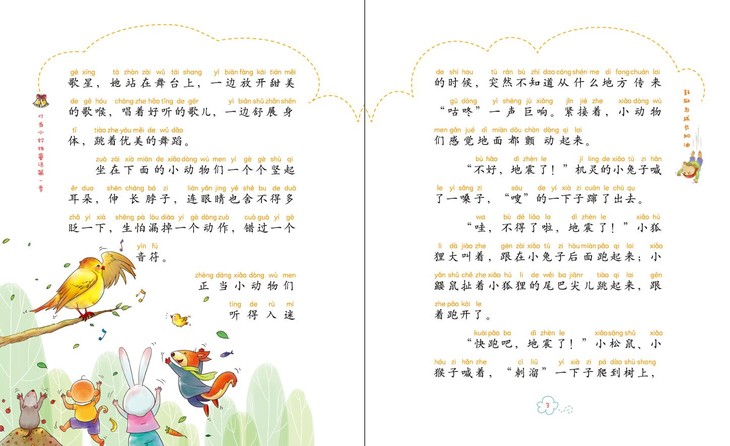 gē xīng tā zhàn zài wǔ tái shang yì biān fàng kāi tián měi
歌星，她站在舞台上，一边放开甜美
de gē hóu chàng zhe hǎo tīng de gēr yì biān shū zhǎn shēn
的歌喉，唱着好听的歌儿，一边舒展身
tǐ tiào zhe yōu měi de wǔ dǎo
体，跳着优美的舞蹈。
zuò zài xià miàn de xiǎo dòng wù men yí gè gè shù qǐ
坐在下面的小动物们一个个竖起
ěr duo shēn cháng bó zi lián yǎn jing yě shě bu de duō
耳朵，伸长脖子，连眼睛也舍不得多
zhǎ yí xià shēng pà lòu diào yí gè dòng zuò cuò guò yí gè
眨一下，生怕漏掉一个动作，错过一个
yīn fú
音符。
zhèng dāng xiǎo dòng wù men
正当小动物们
tīng de rù mí
听得入迷
de shí hou tū rán bù zhī dào cóng shén me dì fang chuán lái
的时候，突然不知道从什么地方传来
gū dōng yì shēng jù xiǎng jǐn jiē zhe xiǎo dòng wù
“咕咚”一声巨响。紧接着，小动物
men gǎn jué dì miàn dōu chàn dòng qǐ lai
们感觉地面都颤动起来。
bù hǎo dì zhèn le jī líng de xiǎo tù zi hǎn
“不好，地震了！”机灵的小兔子喊
le yì sǎng zi sōu de yí xià zi cuān le chū qu
了一嗓子，“嗖”的一下子蹿了出去。
wā bù dé liǎo la dì zhèn le xiǎo hú
“哇，不得了啦，地震了！”小狐
li dà jiào zhe gēn zài xiǎo tù zi hòu miàn pǎo qǐ lai xiǎo
狸大叫着，跟在小兔子后面跑起来；小
yǎn shǔ chě zhe xiǎo hú li de wěi ba jiānr tiào qǐ lai gēn
鼹鼠扯着小狐狸的尾巴尖儿跳起来，跟
zhe pǎo kāi le
着跑开了。
kuài pǎo ba dì zhèn le xiǎo sōng shǔ xiǎo
“快跑吧，地震了！”小松鼠、小
hóu zi hǎn zhe cì liū yí xià zi pá dào shù shang
猴子喊着，“刺溜”一下子爬到树上，